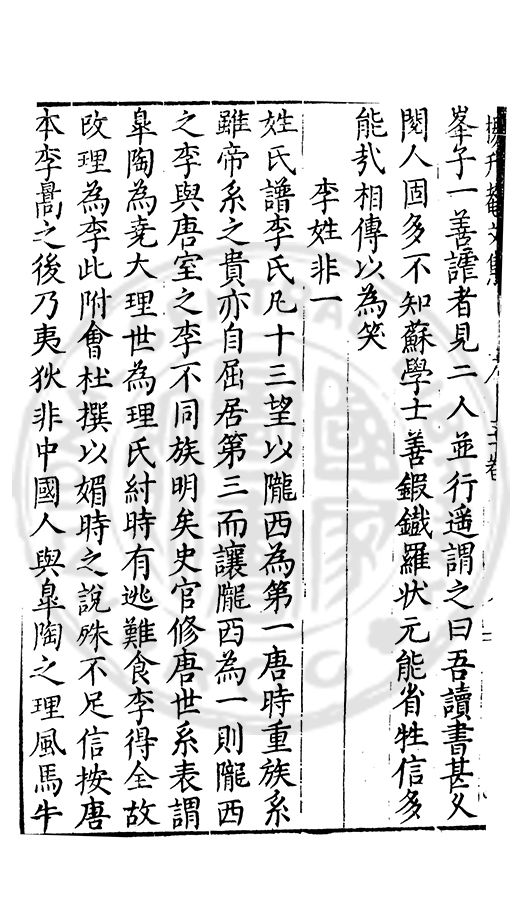 楊升菴文集
峯子一善謔者見二人並行遥謂之曰吾讀書甚久
閱人固多不知蘇學士善鍛鐵羅状元能省牲信多
能㢤相傳以為笑
李姓非一
姓氏譜李氏凡十三望以隴西為第一唐時重族系
雖帝系之貴亦自屈居第三而讓隴西為一則隴西
之李與唐室之李不同族明矣史官修唐世系表謂
臯陶為堯大理世為理氏紂時有逃難食李得全故
改理為李此附會杜撰以媚時之說殊不足信按唐
本李暠之後乃夷狄非中國人與臯陶之理風馬牛